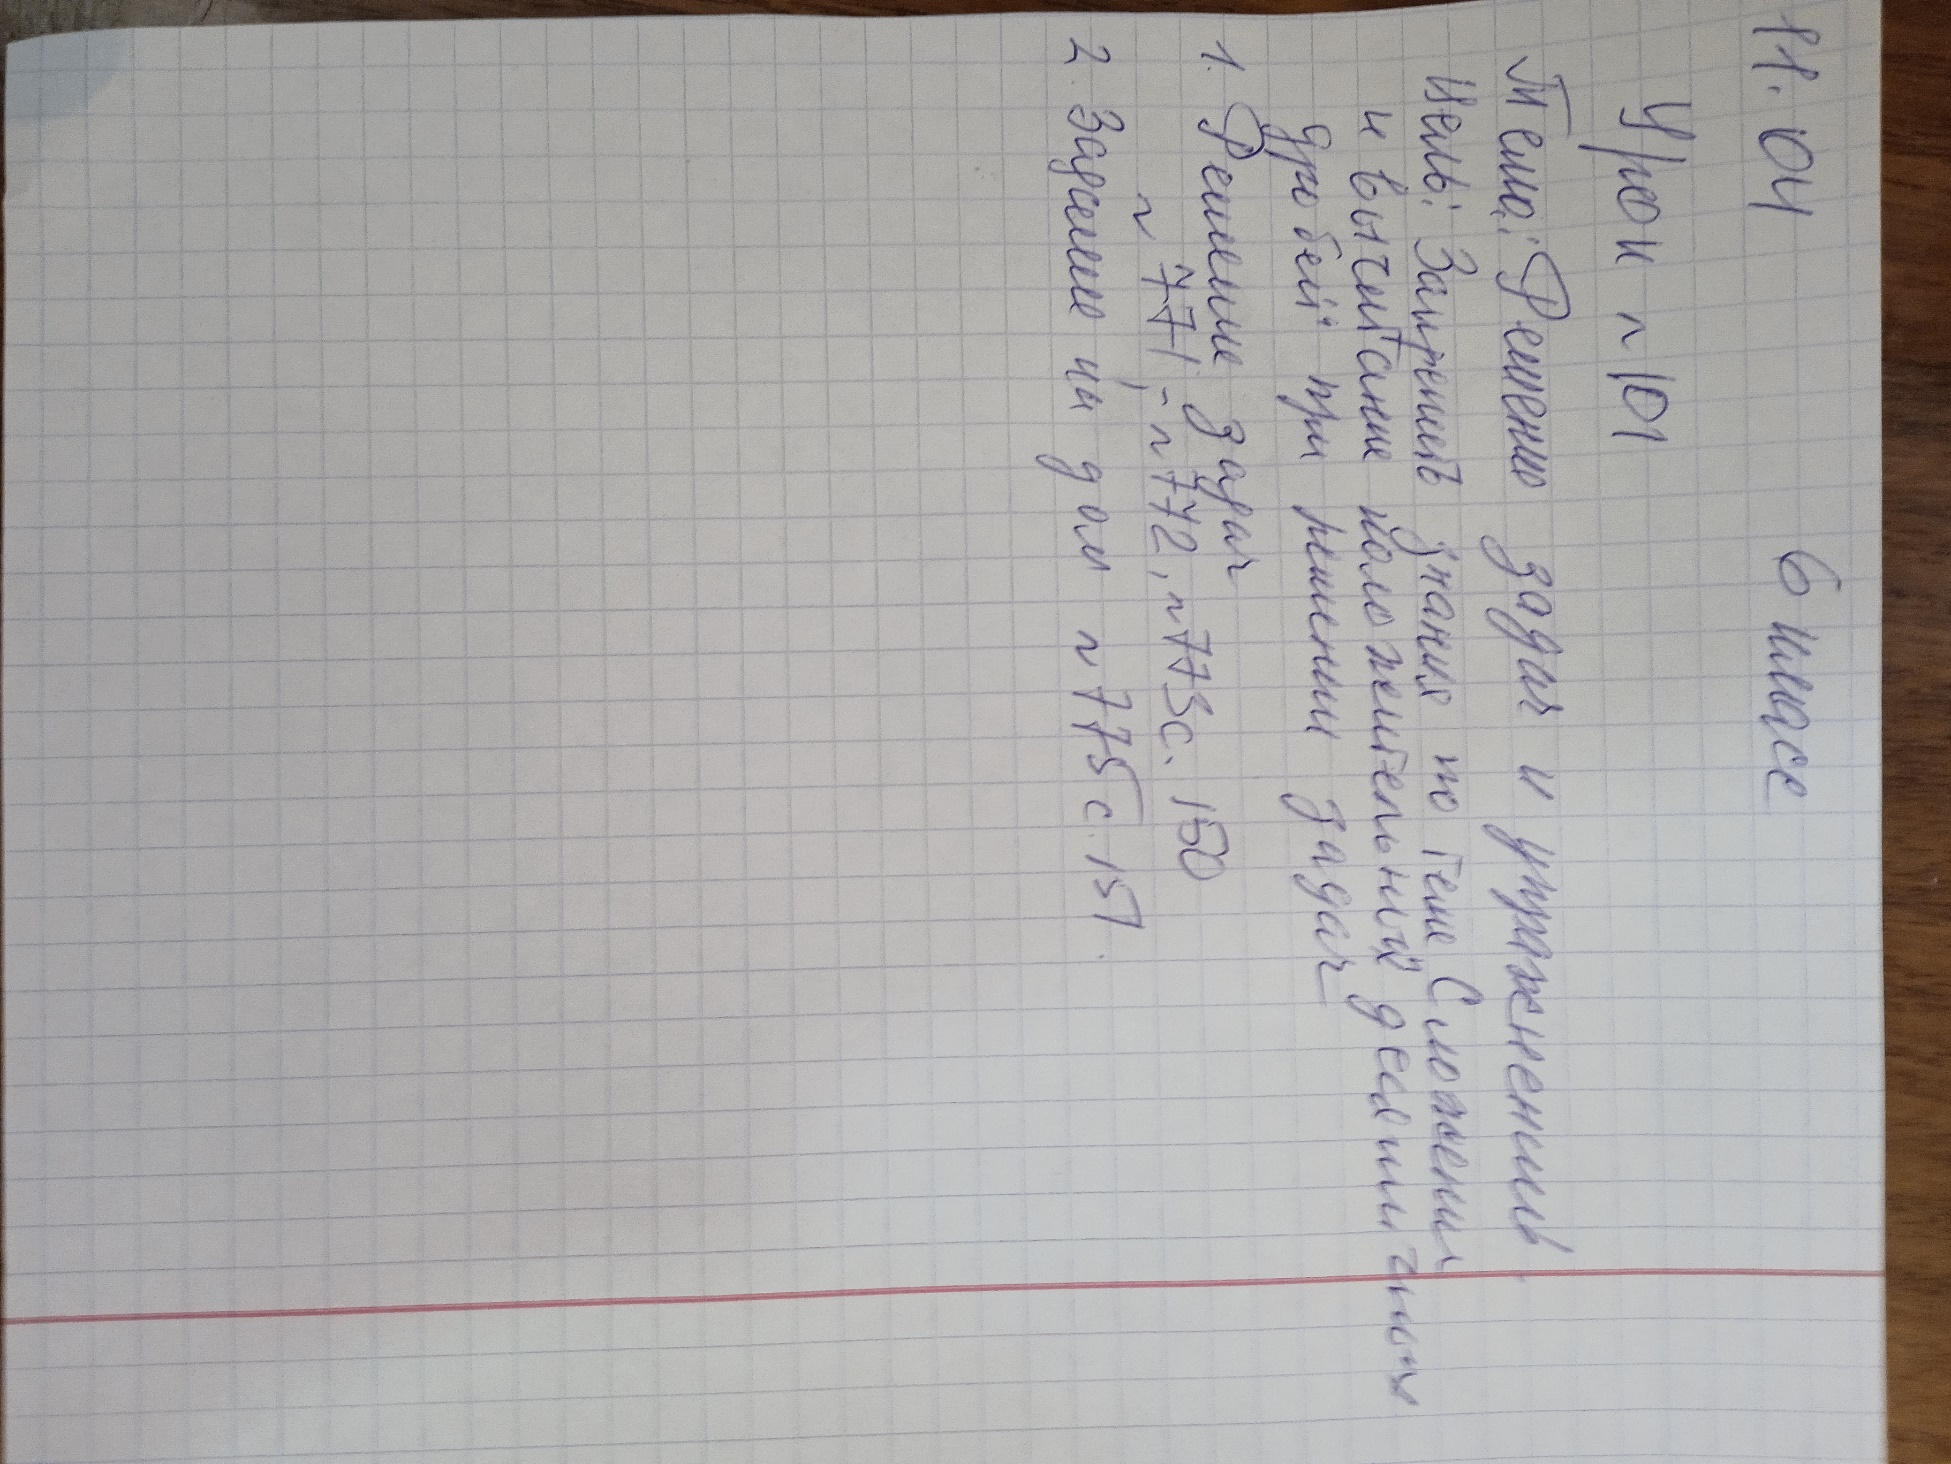 11.04 6 класс
Урок № 101
Тема: Решение задач и упражнений
Цель: Закрепить знания по теме Сложении
и вычитание положительный десятичных
дробей при решении задач
1. Решение задач
№ 771, № 772, № 773 с. 150
2. Задание на дом № 775 с. 151.